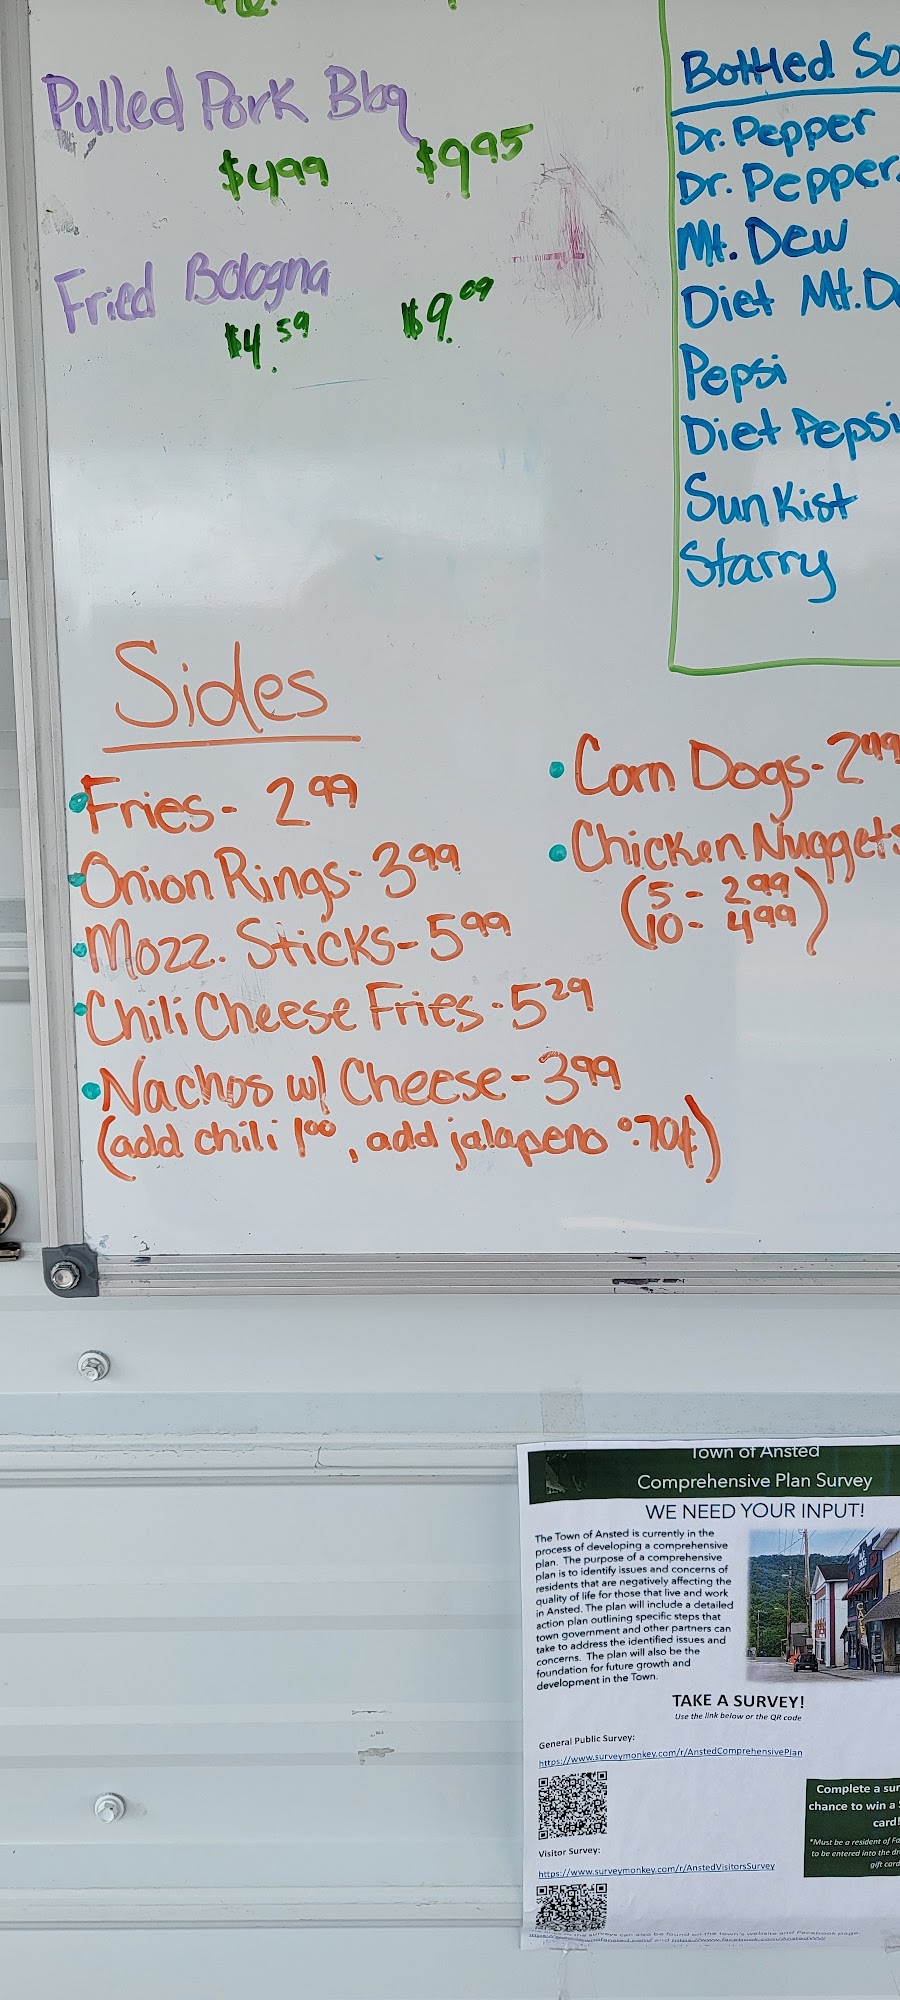 Pulled Pork Bbq
$4.99 $9.95
Fried Bologna
$4.59 $9.09
Bottled
Dr. Pepper
Dr. Pepper
Mt. Dew
Diet Mt.
Pepsi
Diet Pepsi
Sunkist
Starry
Sides
Fries- 2.99
Onion Rings- 3.99
Mozz. Sticks- 5.99
Chili Cheese Fries- 5.29
Nachos w/ Cheese- 3.99
(add chili 1.00, add jalapeno 0.70¢)
Corn Dogs- 2.49
Chicken Nuggets
(5- 2.99
10- 4.99)
Town of Ansted
Comprehensive Plan Survey
WE NEED YOUR INPUT!
The Town of Ansted is currently in the
process of developing a comprehensive
plan. The purpose of a comprehensive
plan is to identify issues and concerns of
residents that are negatively affecting the
quality of life for those that live and work
in Ansted. The plan will include a detailed
action plan outlining specific steps that
town government and other partners can
take to address the identified issues and
concerns. The plan will also be the
foundation for future growth and
development in the Town.
CAFE
TAKE A SURVEY!
Use the link below or the QR code
General Public Survey:
https://www.surveymonkey.com/r/AnstedComprehensivePlan
Visitor Survey:
https://www.surveymonkey.com/r/AnstedVisitorsSurvey
Complete a
chance to win a
card!
*Must be a resident of
to be entered into the
gift card
the surveys can also be found on the town's website and Facebook page.